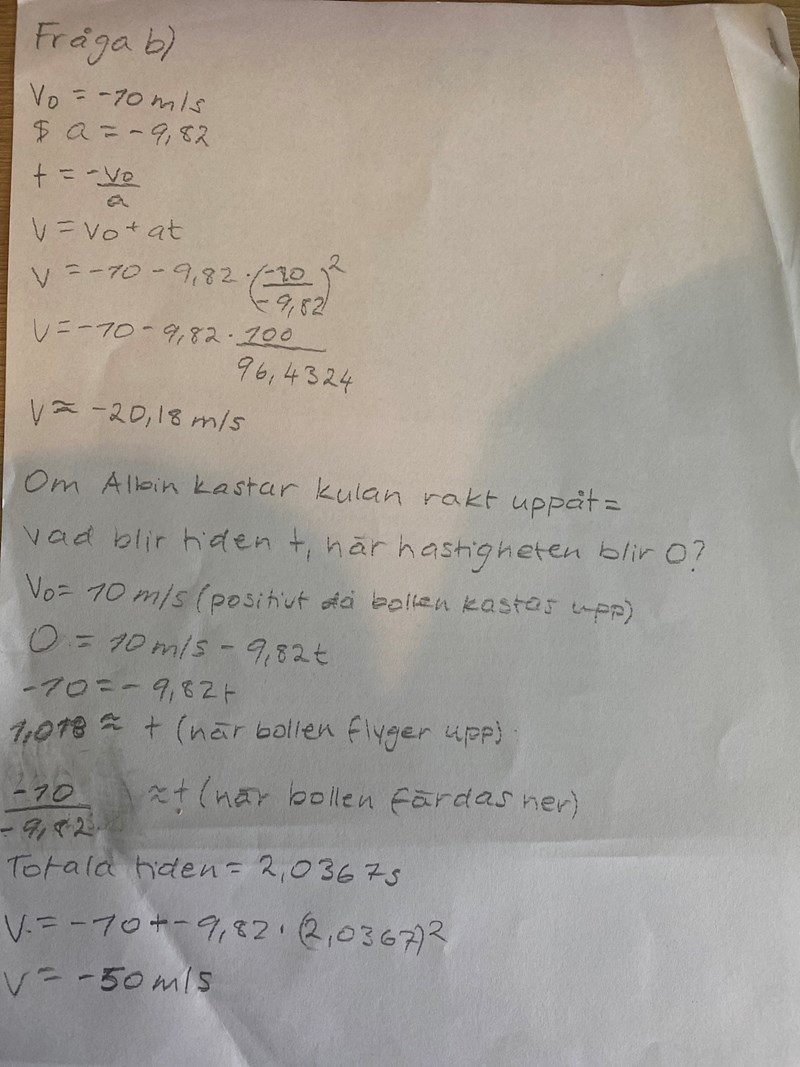 Fråga b)
V0 = -10 m/s
$ a = -9,82
t = -V0/a
V = V0 + at
V = -10 - 9,82 · (-10/-9,82)²
V = -10 - 9,82 · 100/96,4324
V ≈ -20,18 m/s
Om Albin kastar kulan rakt uppåt =
Vad blir tiden t, när hastigheten blir 0?
V0 = 10 m/s (positivt då bollen kastas upp)
0 = 10 m/s - 9,82t
-10 = -9,82t
1,018 ≈ t (när bollen flyger upp)
-10/-9,82 ≈ t (när bollen färdas ner)
Totala tiden = 2,0367s
V = -10 + -9,82 · (2,0367)²
V = -50 m/s